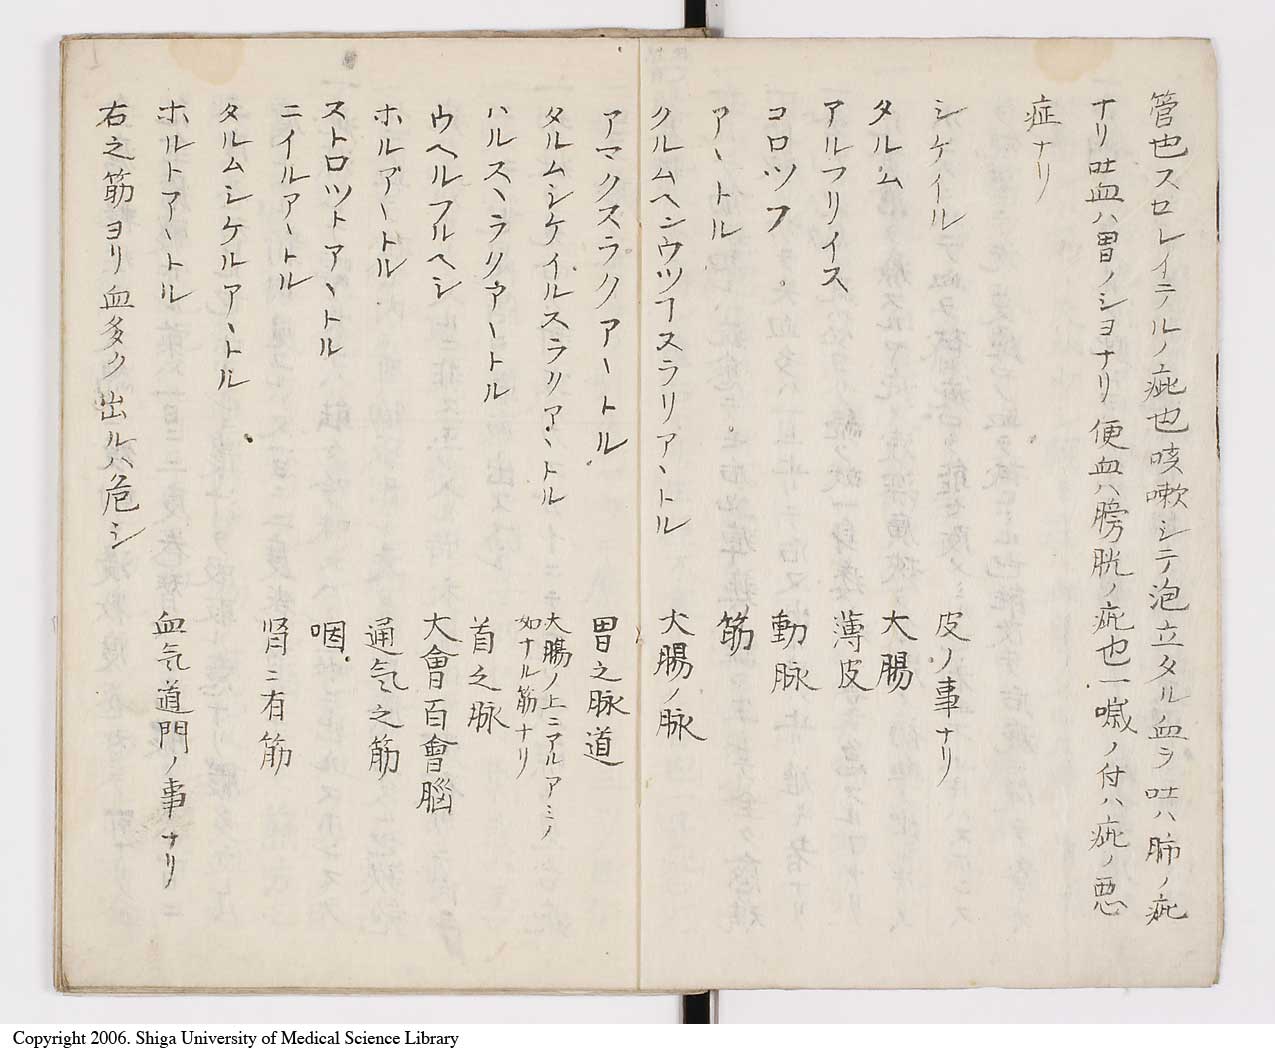 管也スロレイテルノ疵也咳嗽シテ泡立タル血ヲ吐ハ肺ノ疵
ナリ吐血ハ胃ノシヨナリ便血ハ膀胱ノ疵也一嘔ノ付ハ疵ノ悪
症ナリ
シケイル 皮ノ事ナリ
タルム 大腸
アルフリイス 薄皮
コロツフ 動脉
アートル 筋
クルムヘンウツフスラリアートル 大腸ノ脉
アマクスラクアートル 胃之脉道
タルムシケイルスラリアートル 大腸ノ上ニアルアミノ
如ナル筋ナリ
ハルスーラクアートル 首之脉
ウヘルフルヘシ 大會百會腦
ホルアートル 通気之筋
ストロツトアートル 咽
ニイルアートル 肾ニ有筋
タルムシケルアートル
ホルトアートル 血気道門ノ事ナリ
右之筋ヨリ血多ク出ルハ危シ
Copyright 2006. Shiga University of Medical Science Library